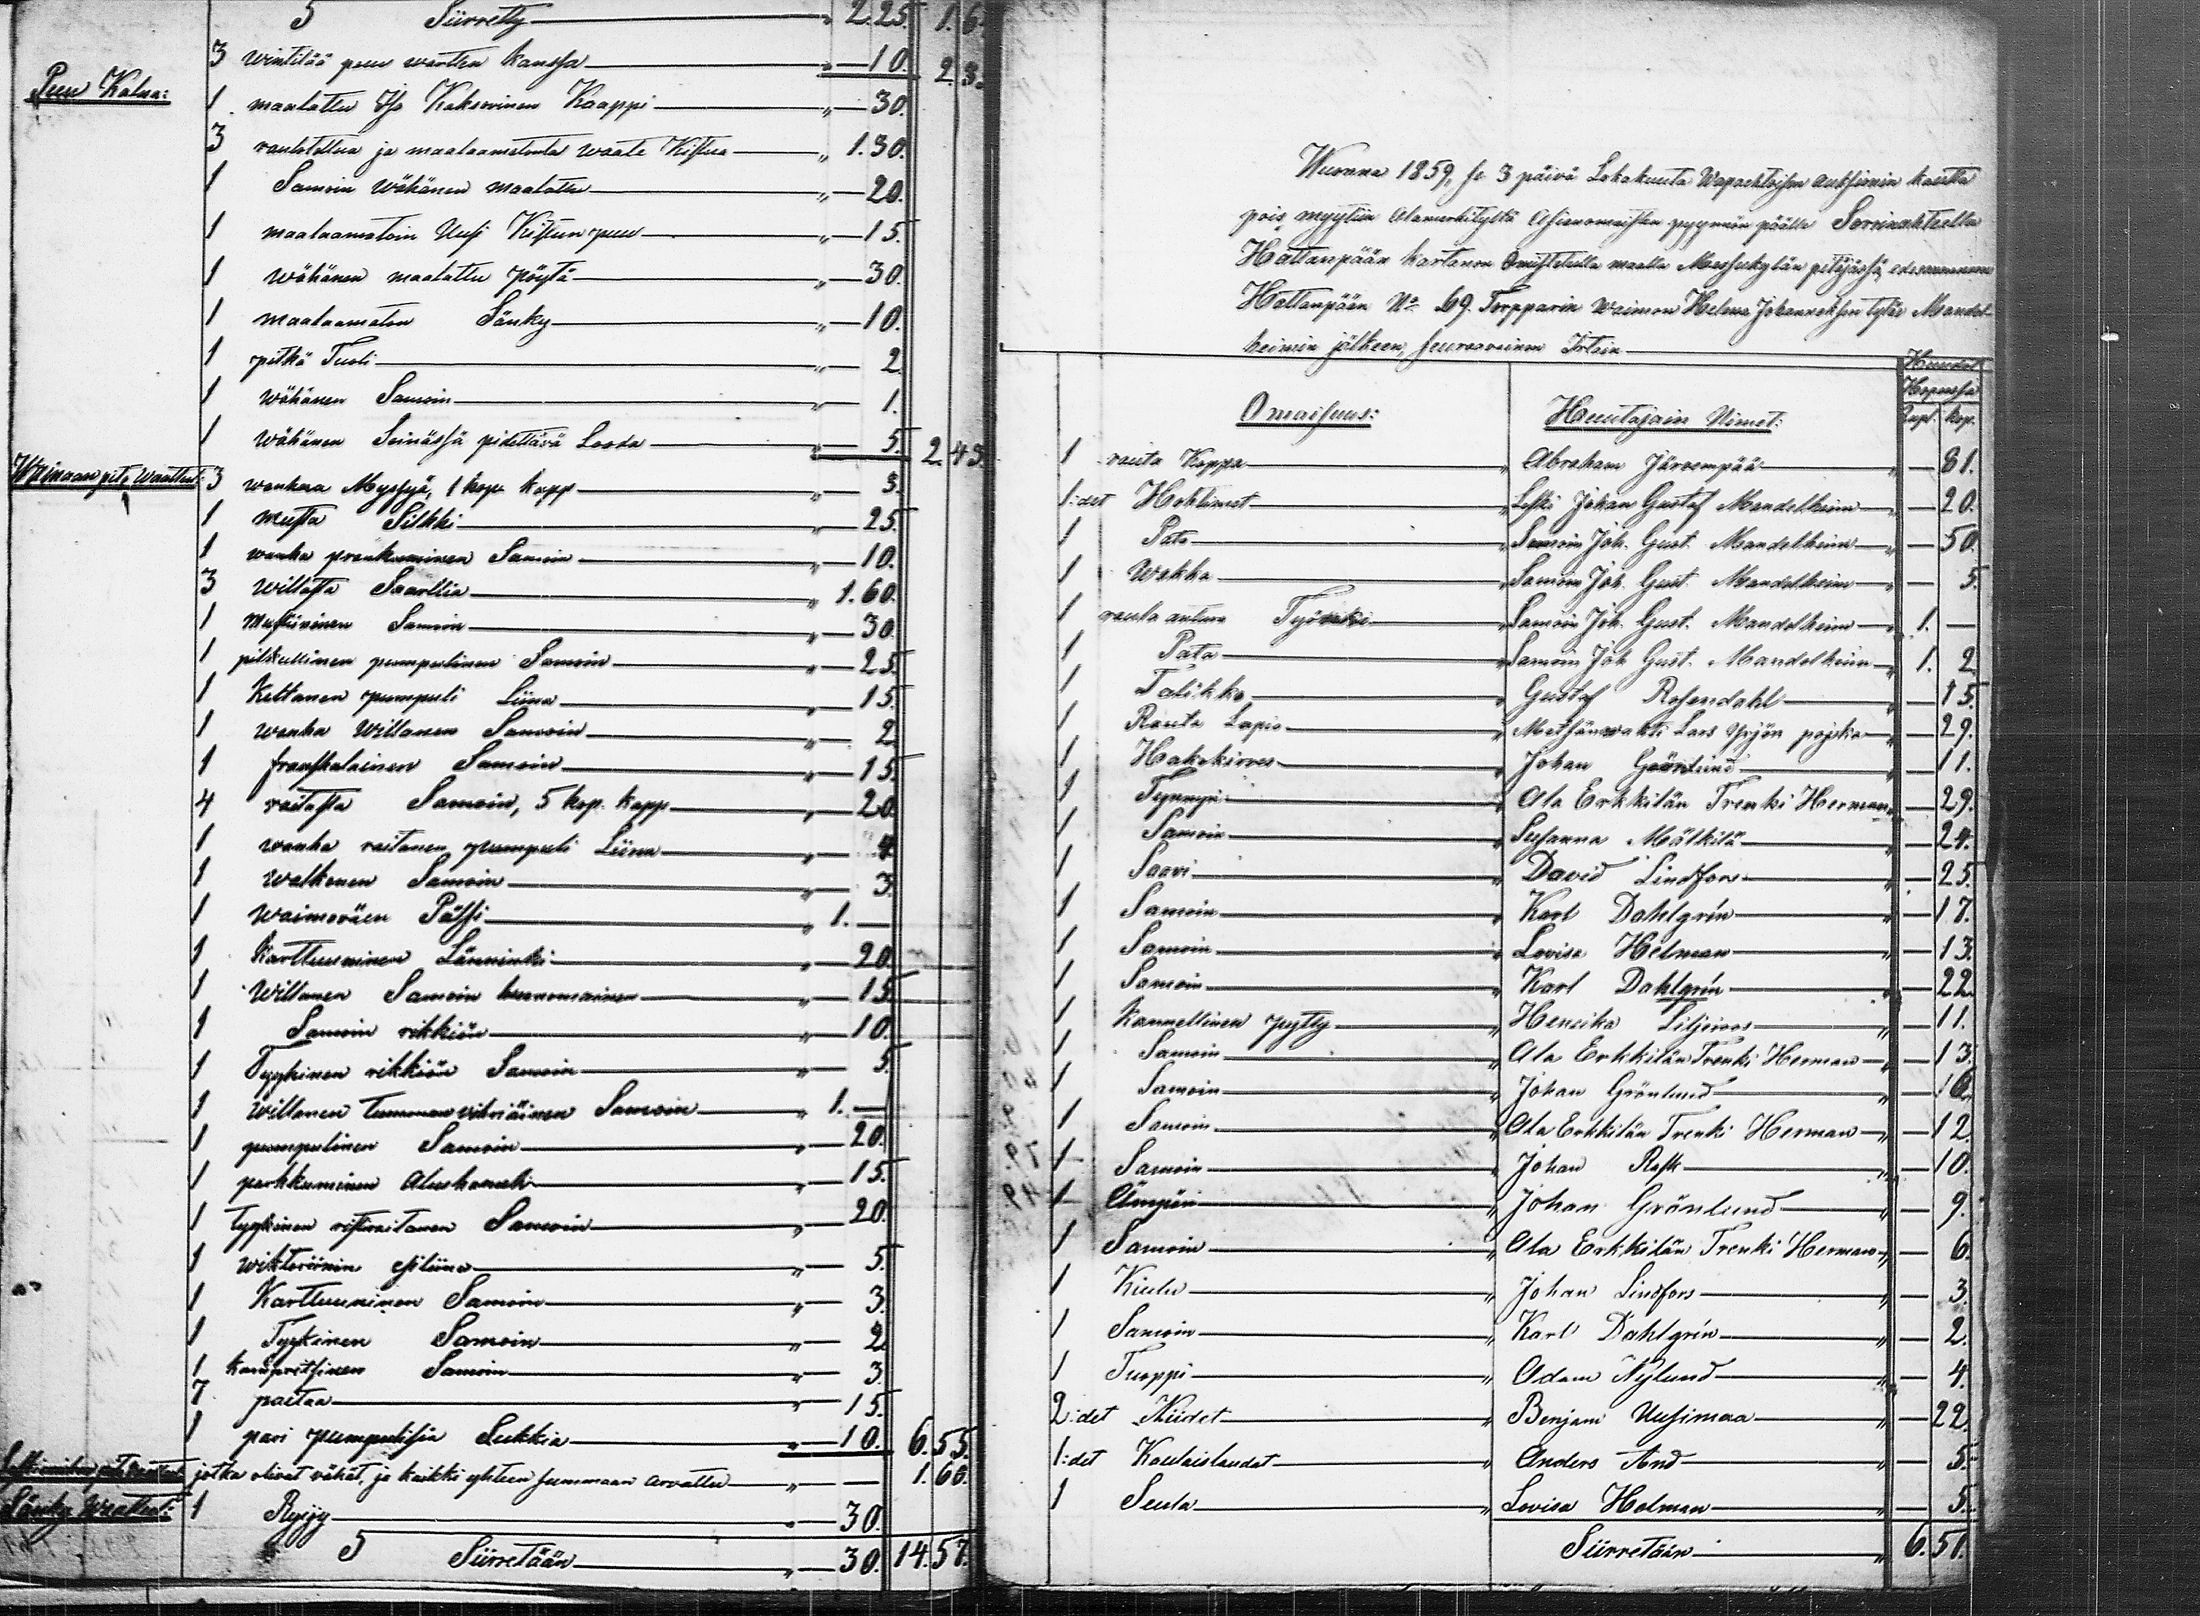 5 Siirretty " 2.25. 1.6
3 wintilää puu wartten kanssa " — 10. 2.3.
Puu Kalua:
1 maalattu Yx Kakserinen Kaappi " — 30.
3 raudotettua ja maalaamatonta waate Kistua " 1.30.
1 Samoin wähänen maalattu " — 20.
1 maalaamatoin Uusi Kistun puu " — 15.
1 wähänen maalattu pöytä " — 30.
1 maalaamaton Sänky " — 10.
1 pitkä Tuoli " — 2
1 wähänen Samoin " — 1.
1 wähänen Seinässä pidettävä Looda " — 5. 2.43.
Waimoin pito Waatteet: 3 wanhaa Myssyä, 1 kop. kapp " — 3.
1 musta Silkki " — 25.
1 wanha prankuminen Samoin " — 10.
3 willasta Saarllia " 1.60.
1 mustiininen Samoin " — 30.
1 pilkullinen pumpulinen Samoin " — 25.
1 Keltanen pumpuli Liina " — 15.
1 wanha Willanen Samoin " — 2
1 franskalainen Samoin " — 15.
4 raitasta Samoin, 5 kop. kapp " — 20.
1 wanha raitanen pumpuli Liina " — 4
1 walkonen Samoin " — 3.
1 waimoväen Pätsi " 1. —
1 Karttuuninen Länninki " — 20.
1 Willanen Samoin huonomainen " — 15.
1 Samoin rikkiön " — 10.
1 Tyykinen rikkiön Samoin " — 5.
1 willanen tumman vihriäinen Samoin " 1. —
1 pumpulinen Samoin " — 20.
1 parkkuminen Alushameh " — 15.
1 Tyykinen ristiraitanen Samoin " — 20.
1 wiktoriinin esiliina " — 5.
1 Karttuuninen Samoin " — 3.
1 Tyykinen Samoin " — 2
1 Samoin " — 3.
7 paitaa " — 15.
1 pari pumpulisia Sukkia " — 10. 6.55.
jotka olivat vähät, ja kaikki yhteen summaan arvattu " — 1.60.
Sänky Waatteet: 1 Ryijy " — 30.
5 Siirretään " — 30. 14.57.
Wuonna 1859, se 3 päivä Lokakuuta Wapaehtoisen auksionin kautta
pois myytiin Alamerkityltä Asianomaisten pyynnön päälle Sorvinahteella
Hattanpään kartanon Omistetulla maalla Messukylän pitäjässä, edesmenneen
Hattanpään No 69. Torpparin waimon Helena Johanneksen tytär Mandel-
heimin jälkeen, seuraavainen Irtain
Huudot
Hopeassa
Omaisuus: Huutajain Nimet: Rupl. kop.
1 rauta Kappa " Abraham Järvempää " — 81.
1:det Hohtimet " Leski Johan Gustaf Mandelheim " — 20.
1 Pata " Samoin Joh. Gust. Mandelheim " — 50.
1 Wakka " Samoin Joh. Gust. Mandelheim " — 5.
1 rauta antura " Samoin Joh. Gust. Mandelheim " 1. —
1 Pata " Samoin Joh. Gust. Mandelheim " 1. 2
1 Talikko " Gustaf Rosendahl " — 15.
1 Rauta Lapio " Metsänwahti Lars Yrjön pojika " — 29.
1 Hakokirves " Johan Grönlund " — 11.
1 Tynnyri " Ala Erkkilän Trenki Herman " — 29.
1 Samoin " Susanna Mälkilä " — 24.
1 Saavi " David Lindfors " — 25.
1 Samoin " Karl Dahlgrin " — 17.
1 Samoin " Lovisa Helman " — 13.
1 Samoin " Karl Dahlgrin " — 22.
1 Kannellinen pytty " Henrika Liljeroos " — 11.
1 Samoin " Ala Erkkilän Trenki Herman " — 13.
1 Samoin " Johan Grönlund " — 16.
1 Samoin " Ala Erkkilän Trenki Herman " — 12.
1 Samoin " Johan Rask " — 10.
1 Ämpäri " Johan Grönlund " — 9.
1 Samoin " Ala Erkkilän Trenki Herman " — 6.
1 Kiulu " Johan Lindfors " — 3.
1 Samoin " Karl Dahlgrin " — 2.
1 Tuoppi " Adam Nylund " — 4.
2:det Niidet " Benjam Uusimaa " — 22.
1:det Kaulaislaudat " Anders And " — 5.
1 Seula " Lovisa Holman " — 5.
Siirretään " 6.51.